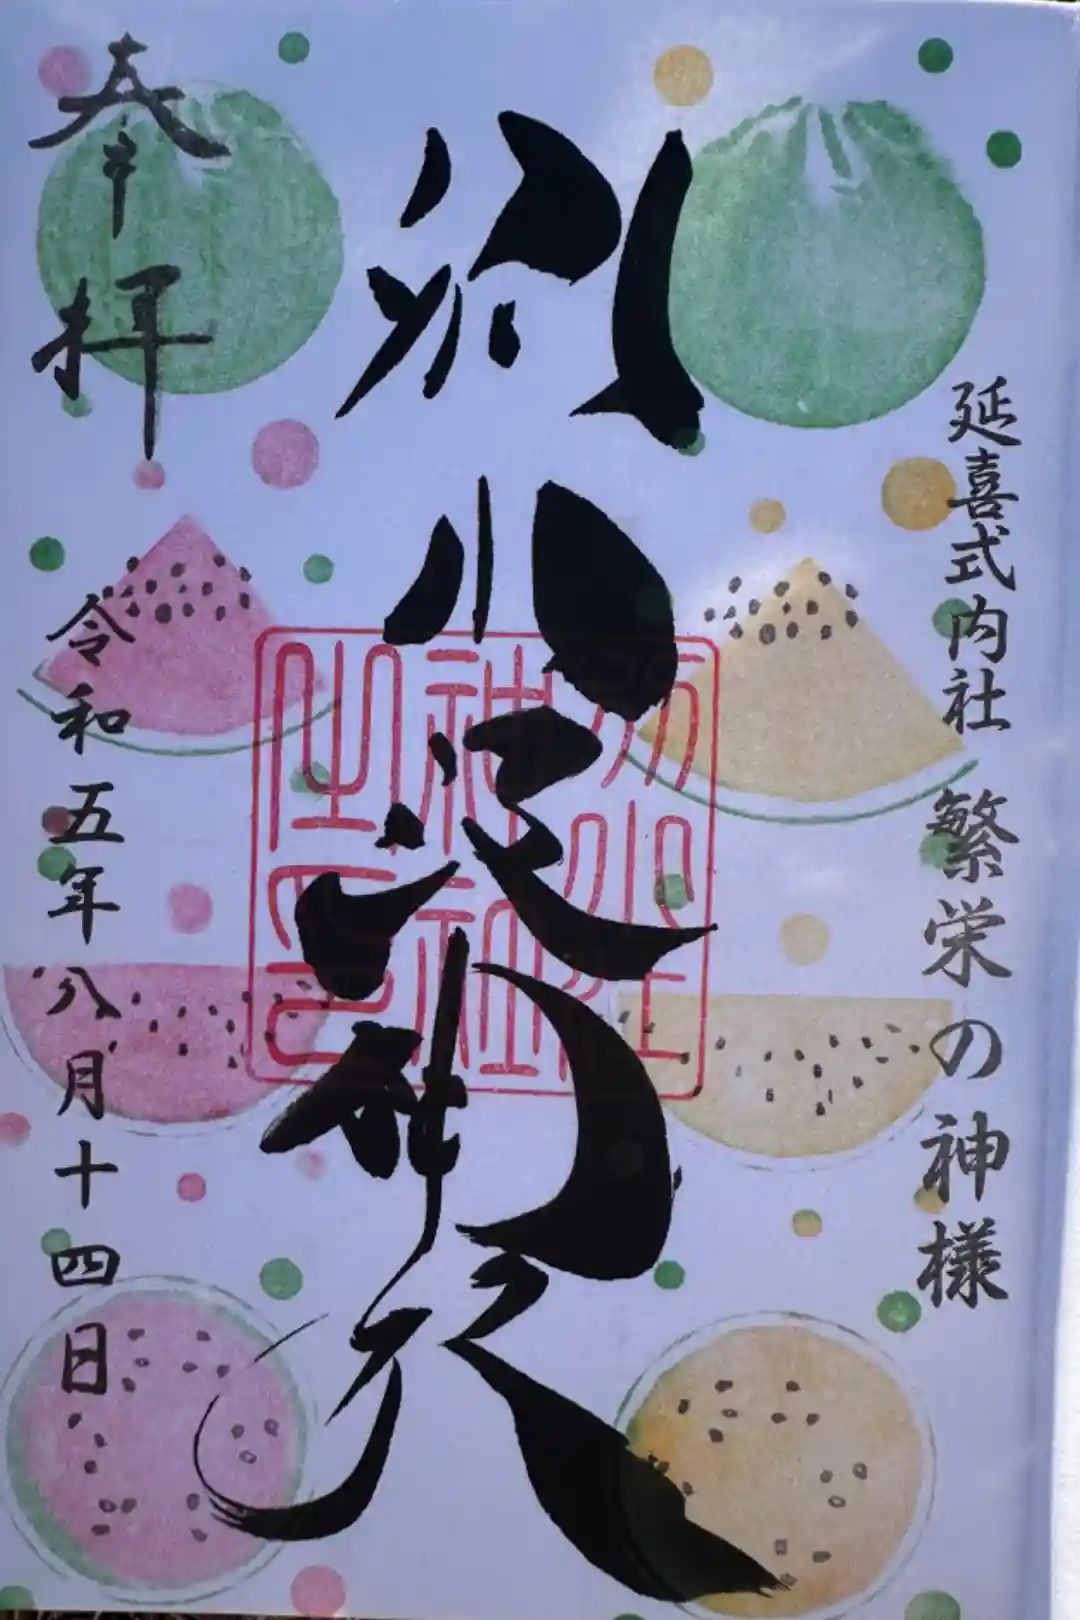 延喜式内社 繁栄の神様
別小江神社
別小江
神社
之印
奉拝
令和五年八月十四日